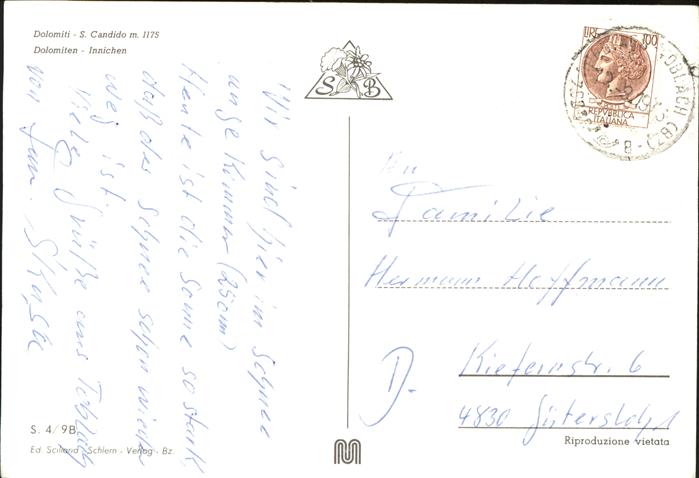 Dolomiti - S. Candido m. 1175
Dolomiten - Innichen
S B
Wir sind hier im Schnee
angekommen (25cm)
Heute ist die Sonne so stark,
daß der Schnee schon wieder
weg ist.
Viele Grüße aus Toblach
von Fam.
S. 4/9B
Ed Sciliand - Schlern - Verlag - Bz.
LIRE 100
REPVBBLICA
ITALIANA
TOBLACH (BZ)
An
Familie
Hermann Hoffmann
Kiefernstr. 6
D.
4830 Gütersloh 1
Riproduzione vietata